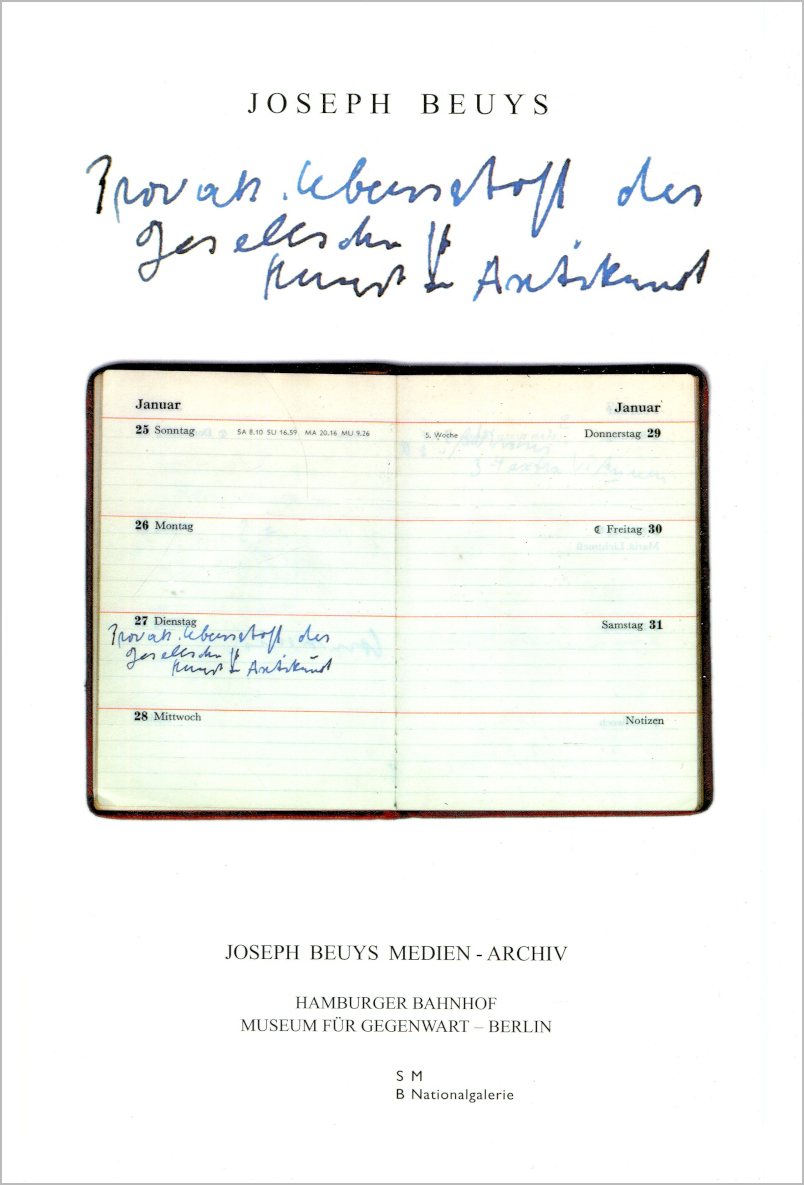 JOSEPH BEUYS
Provok. Lebensstoff der
Gesellschaft
Kunst u Antikunst
Januar
25 Sonntag SA 8.10 SU 16.59 MA 20.16 MU 9.26
26 Montag
27 Dienstag
Provok. Lebensstoff der
Gesellschaft
Kunst u Antikunst
28 Mittwoch
Januar
5. Woche Donnerstag 29
☾ Freitag 30
Samstag 31
Notizen
JOSEPH BEUYS MEDIEN - ARCHIV
HAMBURGER BAHNHOF
MUSEUM FÜR GEGENWART – BERLIN
S M
B Nationalgalerie